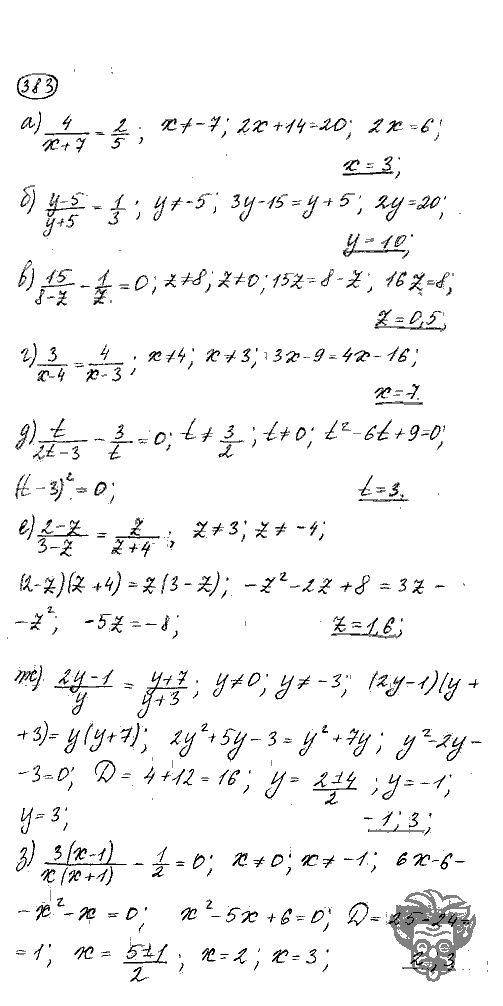 383
а) 4/(x+7) = 2/5; x ≠ -7; 2x+14=20; 2x=6;
x=3;
б) (y-5)/(y+5) = 1/3; y ≠ -5; 3y-15=y+5; 2y=20;
y=10;
в) 15/(8-z) - 1/z = 0; z≠8; z≠0; 15z=8-z; 16z=8;
z=0,5;
г) 3/(x-4) = 4/(x-3); x≠4; x≠3; 3x-9=4x-16;
x=7.
д) t/(2t-3) - 3/t = 0; t ≠ 3/2; t≠0; t²-6t+9=0;
(t-3)²=0; t=3.
е) (2-z)/(3-z) = z/(z+4); z≠3; z≠-4;
(2-z)(z+4)=z(3-z); -z²-2z+8=3z-
-z²; -5z=-8; z=1,6;
ж) (2y-1)/y = (y+7)/(y+3); y≠0; y≠-3; (2y-1)(y+
+3)=y(y+7); 2y²+5y-3=y²+7y; y²-2y-
-3=0; D=4+12=16; y=(2±4)/2; y=-1;
y=3; -1; 3;
з) 3(x-1)/(x(x+1)) - 1/2 = 0; x≠0; x≠-1; 6x-6-
-x²-x=0; x²-5x+6=0; D=25-24=
=1; x=(5±1)/2; x=2; x=3; 2; 3